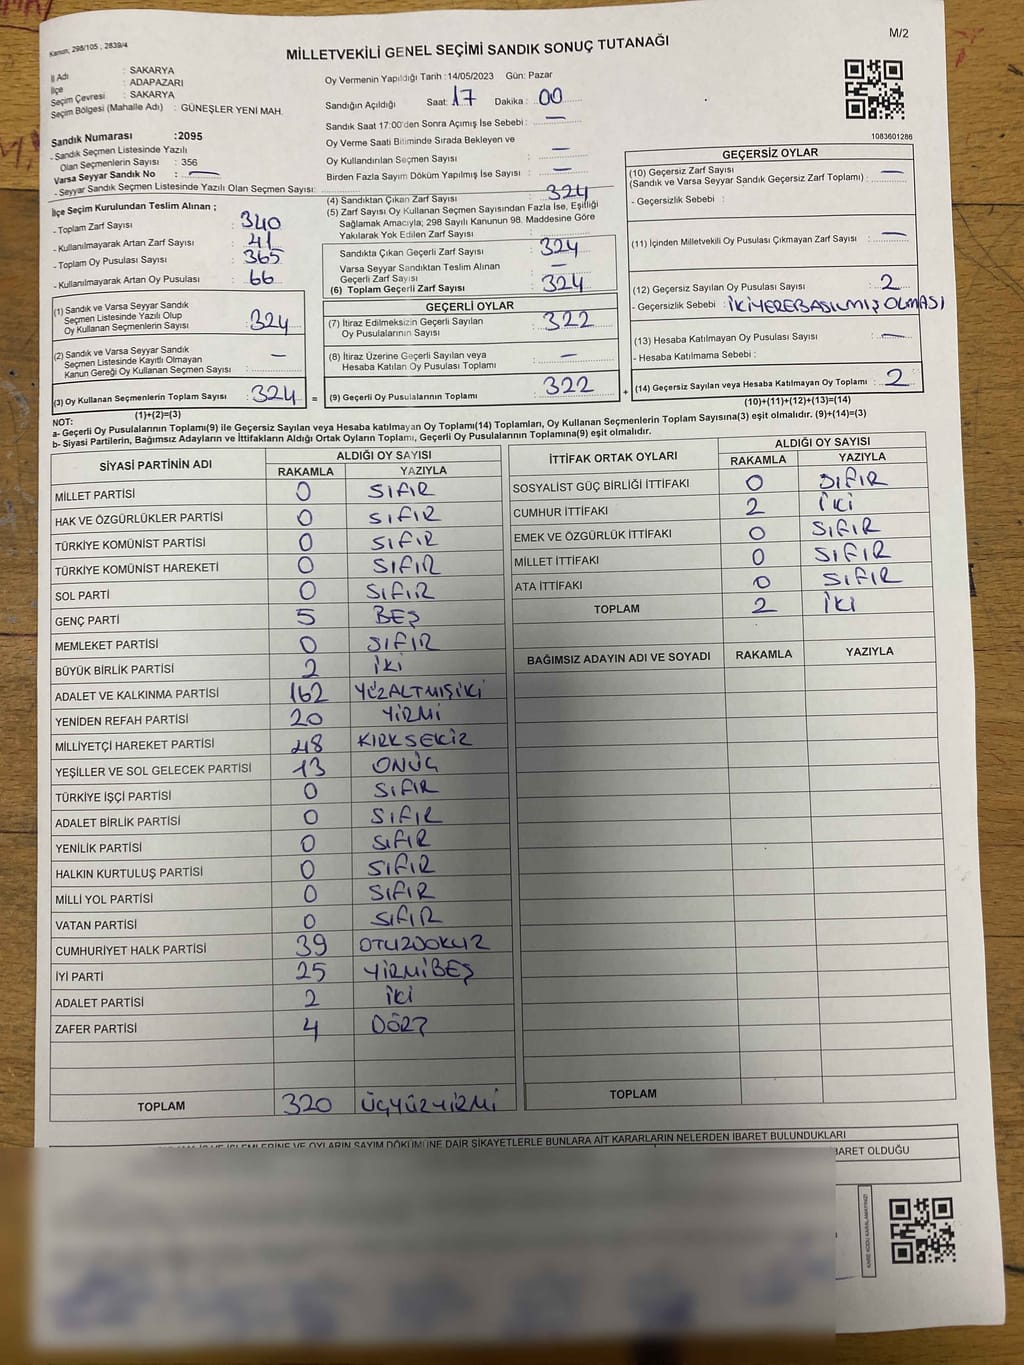 Kanun; 298/105 , 2839/4
M/2
MİLLETVEKİLİ GENEL SEÇİMİ SANDIK SONUÇ TUTANAĞI
İl Adı : SAKARYA
İlçe : ADAPAZARI
Seçim Çevresi : SAKARYA
Seçim Bölgesi (Mahalle Adı) : GÜNEŞLER YENİ MAH.
Oy Vermenin Yapıldığı Tarih :14/05/2023 Gün: Pazar
Sandığın Açıldığı Saat: 17 Dakika : 00
Sandık Saat 17:00'den Sonra Açımış İse Sebebi : —
Oy Verme Saati Bitiminde Sırada Bekleyen ve
Oy Kullandırılan Seçmen Sayısı : —
Birden Fazla Sayım Döküm Yapılmış İse Sayısı : —
1083601286
Sandık Numarası :2095
- Sandık Seçmen Listesinde Yazılı
Olan Seçmenlerin Sayısı : 356
Varsa Seyyar Sandık No : —
- Seyyar Sandık Seçmen Listesinde Yazılı Olan Seçmen Sayısı:
İlçe Seçim Kurulundan Teslim Alınan ;
- Toplam Zarf Sayısı : 340
- Kullanılmayarak Artan Zarf Sayısı : 41
- Toplam Oy Pusulası Sayısı : 365
- Kullanılmayarak Artan Oy Pusulası : 66
(1) Sandık ve Varsa Seyyar Sandık
Seçmen Listesinde Yazılı Olup
Oy Kullanan Seçmenlerin Sayısı : 324
(2) Sandık ve Varsa Seyyar Sandık
Seçmen Listesinde Kayıtlı Olmayan
Kanun Gereği Oy Kullanan Seçmen Sayısı : —
(3) Oy Kullanan Seçmenlerin Toplam Sayısı : 324 =
(1)+(2)=(3)
(4) Sandıktan Çıkan Zarf Sayısı : 324
(5) Zarf Sayısı Oy Kullanan Seçmen Sayısından Fazla İse, Eşitliği
Sağlamak Amacıyla; 298 Sayılı Kanunun 98. Maddesine Göre
Yakılarak Yok Edilen Zarf Sayısı :
Sandıkta Çıkan Geçerli Zarf Sayısı : 324
Varsa Seyyar Sandıktan Teslim Alınan
Geçerli Zarf Sayısı : —
(6) Toplam Geçerli Zarf Sayısı : 324
GEÇERLİ OYLAR
(7) İtiraz Edilmeksizin Geçerli Sayılan
Oy Pusulalarının Sayısı : 322
(8) İtiraz Üzerine Geçerli Sayılan veya
Hesaba Katılan Oy Pusulası Toplamı : —
(9) Geçerli Oy Pusulalarının Toplamı : 322 +
GEÇERSİZ OYLAR
(10) Geçersiz Zarf Sayısı
(Sandık ve Varsa Seyyar Sandık Geçersiz Zarf Toplamı) : —
- Geçersizlik Sebebi :
(11) İçinden Milletvekili Oy Pusulası Çıkmayan Zarf Sayısı : —
(12) Geçersiz Sayılan Oy Pusulası Sayısı : 2
- Geçersizlik Sebebi : İKİ YERE BASILMIŞ OLMASI
(13) Hesaba Katılmayan Oy Pusulası Sayısı : —
- Hesaba Katılmama Sebebi :
(14) Geçersiz Sayılan veya Hesaba Katılmayan Oy Toplamı : 2
(10)+(11)+(12)+(13)=(14)
NOT:
a- Geçerli Oy Pusulalarının Toplamı(9) ile Geçersiz Sayılan veya Hesaba katılmayan Oy Toplamı(14) Toplamları, Oy Kullanan Seçmenlerin Toplam Sayısına(3) eşit olmalıdır. (9)+(14)=(3)
b- Siyasi Partilerin, Bağımsız Adayların ve İttifakların Aldığı Ortak Oyların Toplamı, Geçerli Oy Pusulalarının Toplamına(9) eşit olmalıdır.
SİYASİ PARTİNİN ADI ALDIĞI OY SAYISI
RAKAMLA YAZIYLA
MİLLET PARTİSİ 0 SIFIR
HAK VE ÖZGÜRLÜKLER PARTİSİ 0 SIFIR
TÜRKİYE KOMÜNİST PARTİSİ 0 SIFIR
TÜRKİYE KOMÜNİST HAREKETİ 0 SIFIR
SOL PARTİ 0 SIFIR
GENÇ PARTİ 5 BEŞ
MEMLEKET PARTİSİ 0 SIFIR
BÜYÜK BİRLİK PARTİSİ 2 İKİ
ADALET VE KALKINMA PARTİSİ 162 YÜZALTMIŞİKİ
YENİDEN REFAH PARTİSİ 20 YİRMİ
MİLLİYETÇİ HAREKET PARTİSİ 48 KIRKSEKİZ
YEŞİLLER VE SOL GELECEK PARTİSİ 13 ONÜÇ
TÜRKİYE İŞÇİ PARTİSİ 0 SIFIR
ADALET BİRLİK PARTİSİ 0 SIFIR
YENİLİK PARTİSİ 0 SIFIR
HALKIN KURTULUŞ PARTİSİ 0 SIFIR
MİLLİ YOL PARTİSİ 0 SIFIR
VATAN PARTİSİ 0 SIFIR
CUMHURİYET HALK PARTİSİ 39 OTUZDOKUZ
İYİ PARTİ 25 YİRMİBEŞ
ADALET PARTİSİ 2 İKİ
ZAFER PARTİSİ 4 DÖRT
TOPLAM 320 ÜÇYÜZYİRMİ
İTTİFAK ORTAK OYLARI ALDIĞI OY SAYISI
RAKAMLA YAZIYLA
SOSYALİST GÜÇ BİRLİĞİ İTTİFAKI 0 SIFIR
CUMHUR İTTİFAKI 2 İKİ
EMEK VE ÖZGÜRLÜK İTTİFAKI 0 SIFIR
MİLLET İTTİFAKI 0 SIFIR
ATA İTTİFAKI 0 SIFIR
TOPLAM 2 İKİ
BAĞIMSIZ ADAYIN ADI VE SOYADI RAKAMLA YAZIYLA
TOPLAM
OYLARIN SAYIM DÖKÜMÜNE DAİR ŞİKAYETLERLE BUNLARA AİT KARARLARIN NELERDEN İBARET BULUNDUKLARI
BARET OLDUĞU
KARE KODU KARALAMAYINIZ!